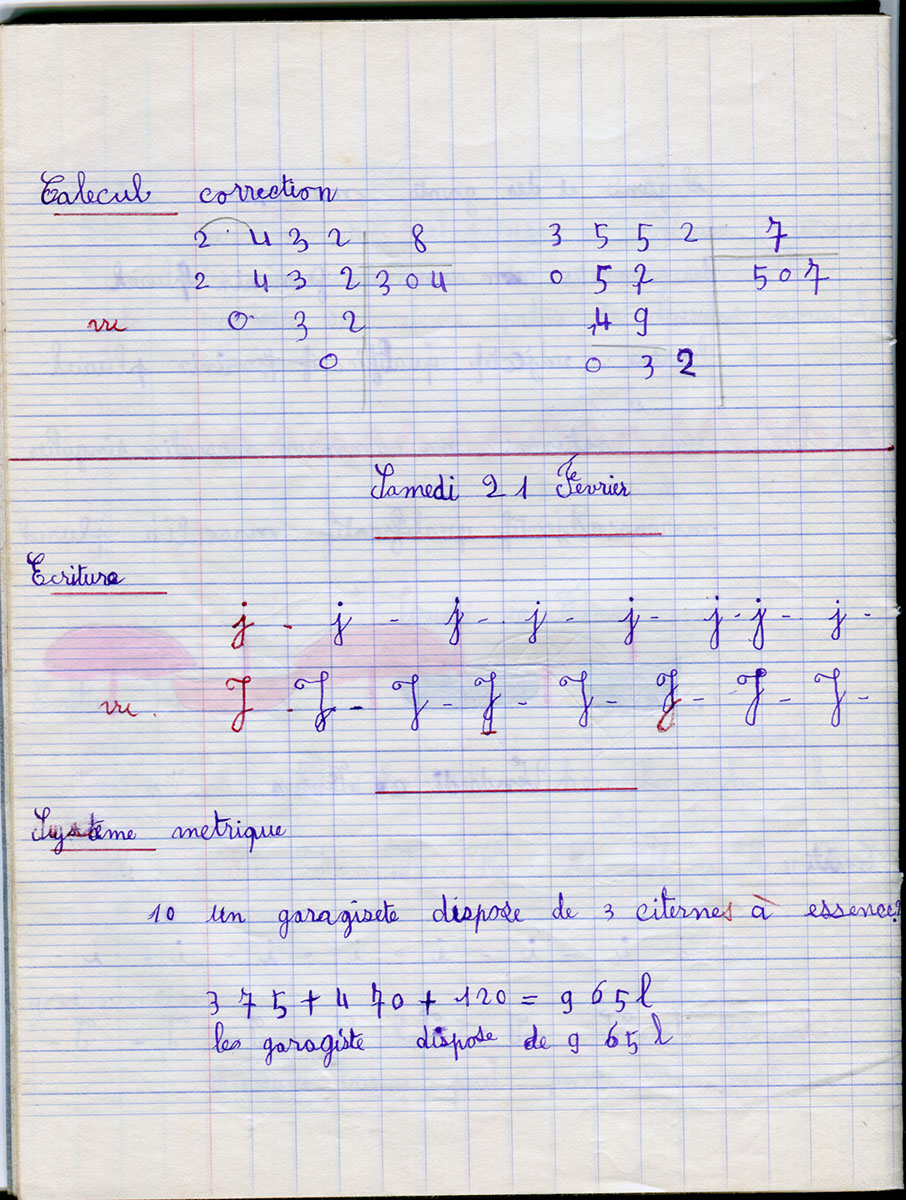 Calecul correction
2 4 3 2 8 3 5 5 2 7
2 4 3 2 3 0 4 0 5 2 5 0 7
vu 0 3 2 4 9
0 0 3 2
Samedi 21 Fevrier
Ecriture
j - j - j - j - j - j - j - j -
vu J - J - J - J - J - J - J - J -
Système metrique
10 un garagisete dispose de 3 citernes à essence?
375 + 470 + 120 = 965 l
les garagiste dispose de 965 l